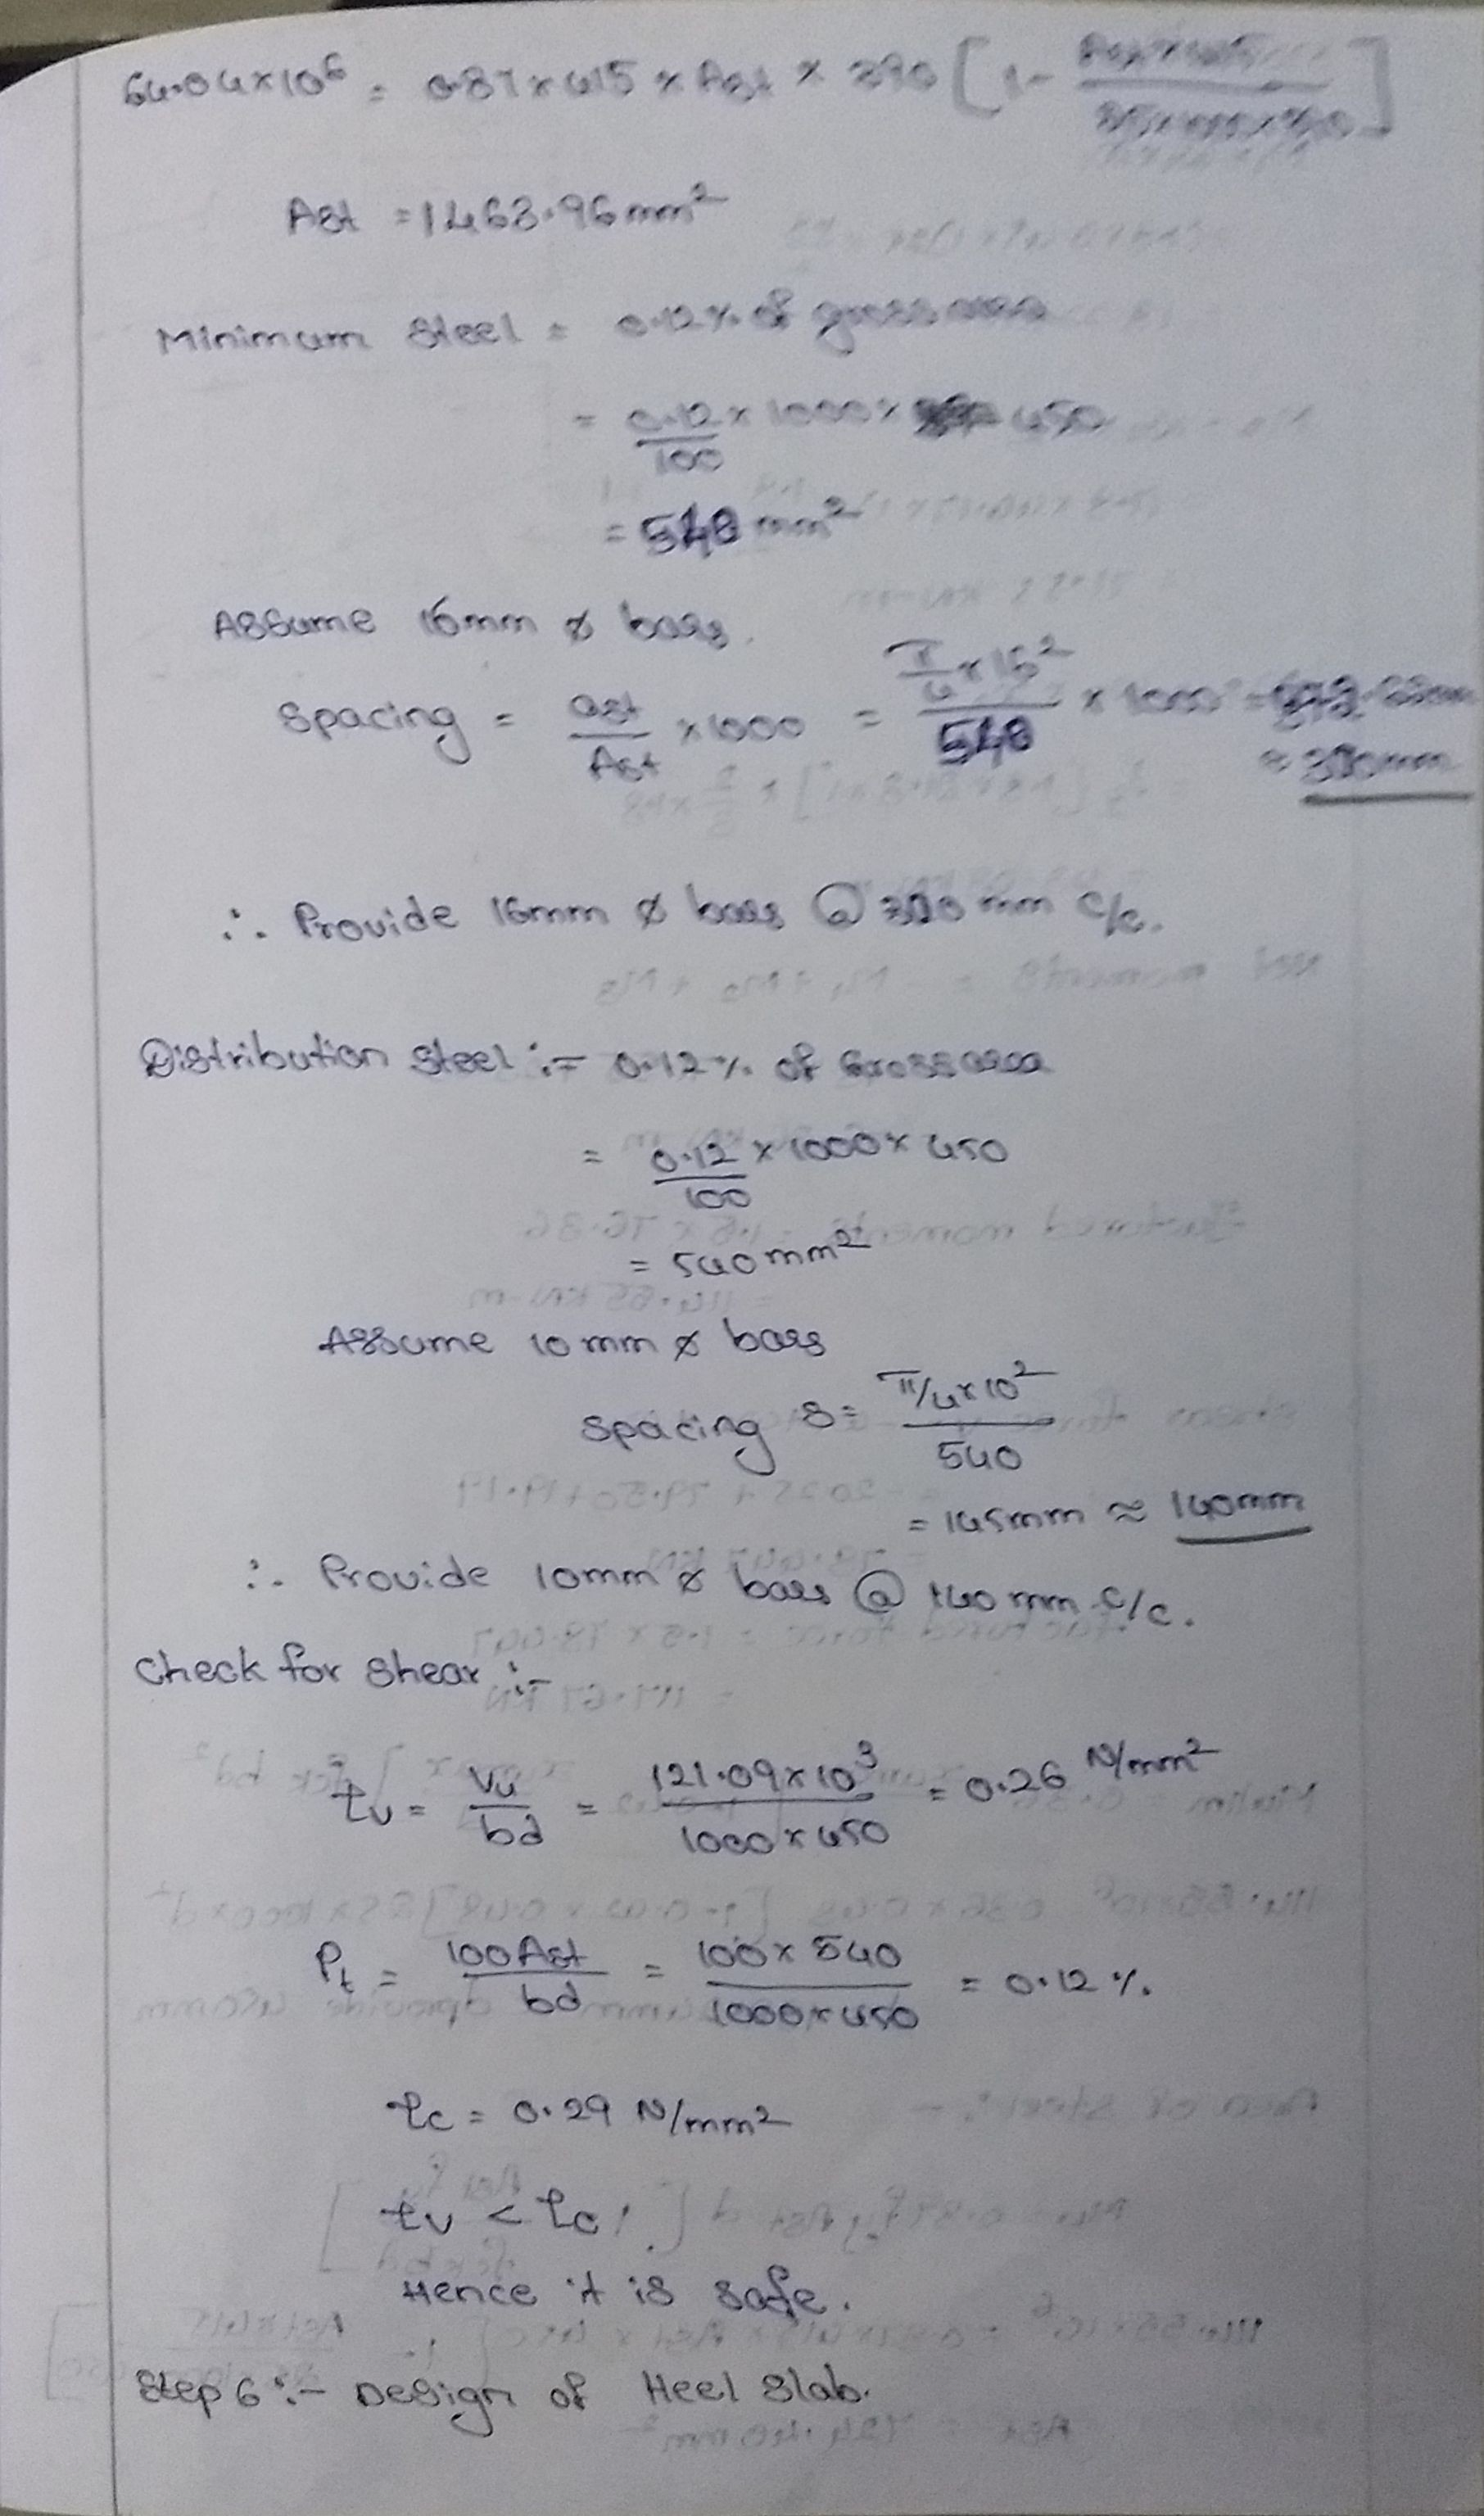 64.04×10⁶ = 0.87×415×Ast × 390 [1-
Ast = 1463.96mm²
Minimum Steel = 0.12% of gross area
= 0.12/100 × 1000× 450
= 540 mm²
Assume 16mm ø bars.
Spacing = ast/Ast ×1000 = π/4×16²/540 × 1000
≈ mm
∴ Provide 16mm ø bars @ mm c/c.
Distribution Steel :- 0.12% of Gross area
= 0.12/100 × 1000× 450
= 540mm²
Assume 10mm ø bars
Spacing S= π/4×10²/540
= 145mm ≈ 140mm
∴ Provide 10mm ø bars @ 140mm c/c.
Check for Shear :-
τv = Vu/bd = 121.09×10³/1000×450 = 0.26 N/mm²
Pt = 100Ast/bd = 100×540/1000×450 = 0.12%.
τc = 0.29 N/mm²
τv < τc
Hence it is safe.
Step 6 :- Design of Heel Slab.